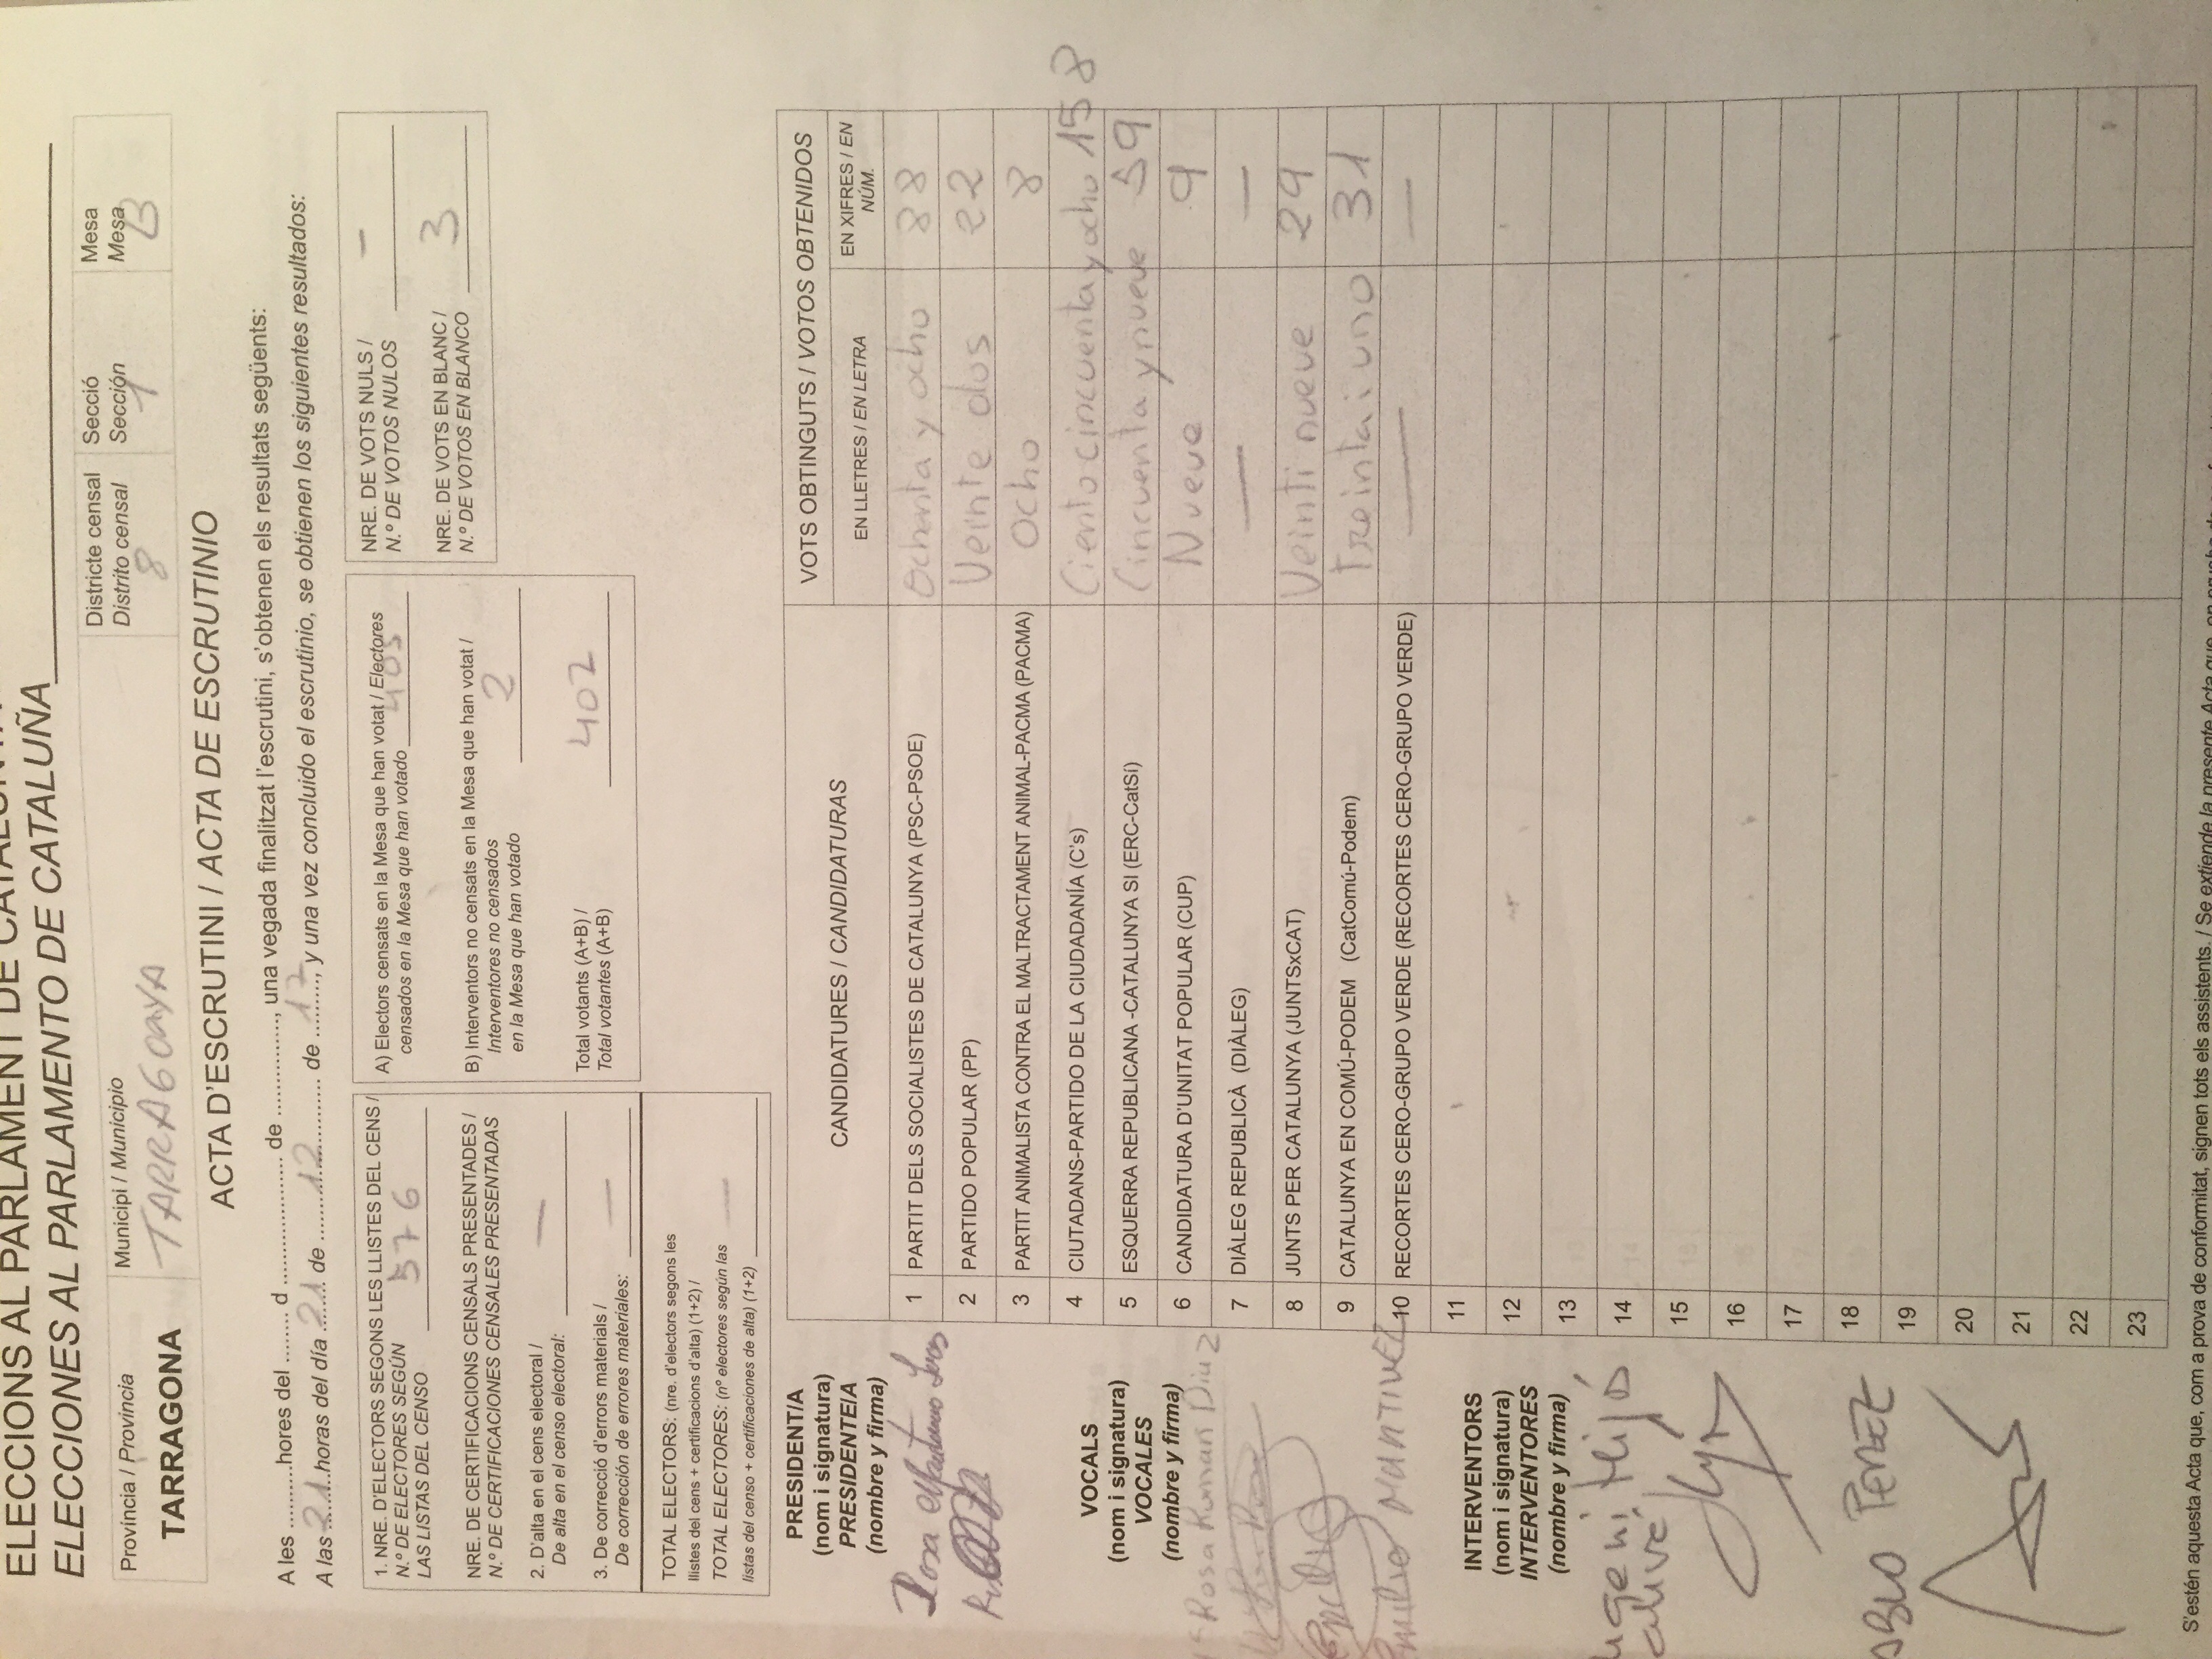 ELECCIONS AL PARLAMENT DE CATALUNYA
ELECCIONES AL PARLAMENTO DE CATALUÑA
Província / Provincia
TARRAGONA
Municipi / Municipio
TARRAGONA
Districte censal
Distrito censal
8
Secció
Sección
1
Mesa
Mesa
B
ACTA D'ESCRUTINI / ACTA DE ESCRUTINIO
A les ..........hores del ........ d .................... de ..............., una vegada finalitzat l'escrutini, s'obtenen els resultats següents:
A las 21 horas del día 21 de 12 de 17, y una vez concluido el escrutinio, se obtienen los siguientes resultados:
1. NRE. D'ELECTORS SEGONS LES LLISTES DEL CENS /
N.º DE ELECTORES SEGÚN
LAS LISTAS DEL CENSO 576
NRE. DE CERTIFICACIONS CENSALS PRESENTADES /
N.º DE CERTIFICACIONES CENSALES PRESENTADAS
2. D'alta en el cens electoral /
De alta en el censo electoral: —
3. De correcció d'errors materials /
De corrección de errores materiales: —
TOTAL ELECTORS: (nre. d'electors segons les
llistes del cens + certificacions d'alta) (1+2) /
TOTAL ELECTORES: (nº electores según las
listas del censo + certificaciones de alta) (1+2) —
A) Electors censats en la Mesa que han votat / Electores
censados en la Mesa que han votado 405
B) Interventors no censats en la Mesa que han votat /
Interventores no censados
en la Mesa que han votado 2
Total votants (A+B) /
Total votantes (A+B) 407
NRE. DE VOTS NULS /
N.º DE VOTOS NULOS —
NRE. DE VOTS EN BLANC /
N.º DE VOTOS EN BLANCO 3
PRESIDENT/A
(nom i signatura)
PRESIDENTE/A
(nombre y firma)
Rosa
VOCALS
(nom i signatura)
VOCALES
(nombre y firma)
Rosa Roman Diaz
Emilio MARTINEZ
INTERVENTORS
(nom i signatura)
INTERVENTORES
(nombre y firma)
ugeni Mijós
ABLO PEREZ
CANDIDATURES / CANDIDATURAS
VOTS OBTINGUTS / VOTOS OBTENIDOS
EN LLETRES / EN LETRA
EN XIFRES / EN
NÚM.
1 PARTIT DELS SOCIALISTES DE CATALUNYA (PSC-PSOE) Ochenta y ocho 88
2 PARTIDO POPULAR (PP) Veinte dos 22
3 PARTIT ANIMALISTA CONTRA EL MALTRACTAMENT ANIMAL-PACMA (PACMA) Ocho 8
4 CIUTADANS-PARTIDO DE LA CIUDADANÍA (C's) Ciento cincuenta y ocho 158
5 ESQUERRA REPUBLICANA -CATALUNYA SI (ERC-CatSí) Cincuenta y nueve 59
6 CANDIDATURA D'UNITAT POPULAR (CUP) Nueve 9
7 DIÀLEG REPUBLICÀ (DIÀLEG) — —
8 JUNTS PER CATALUNYA (JUNTSxCAT) Veinti nueve 29
9 CATALUNYA EN COMÚ-PODEM (CatComú-Podem) Treinta i uno 31
10 RECORTES CERO-GRUPO VERDE (RECORTES CERO-GRUPO VERDE) — —
11
12
13
14
15
16
17
18
19
20
21
22
23
S'estén aquesta Acta que, com a prova de conformitat, signen tots els assistents. / Se extiende la presente Acta que, en